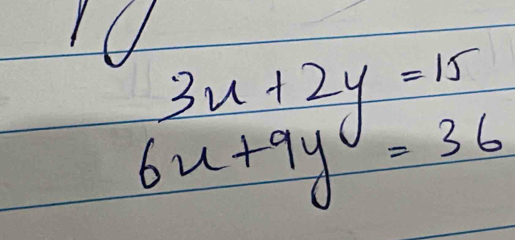 3x + 2y = 15
6x + 9y = 36